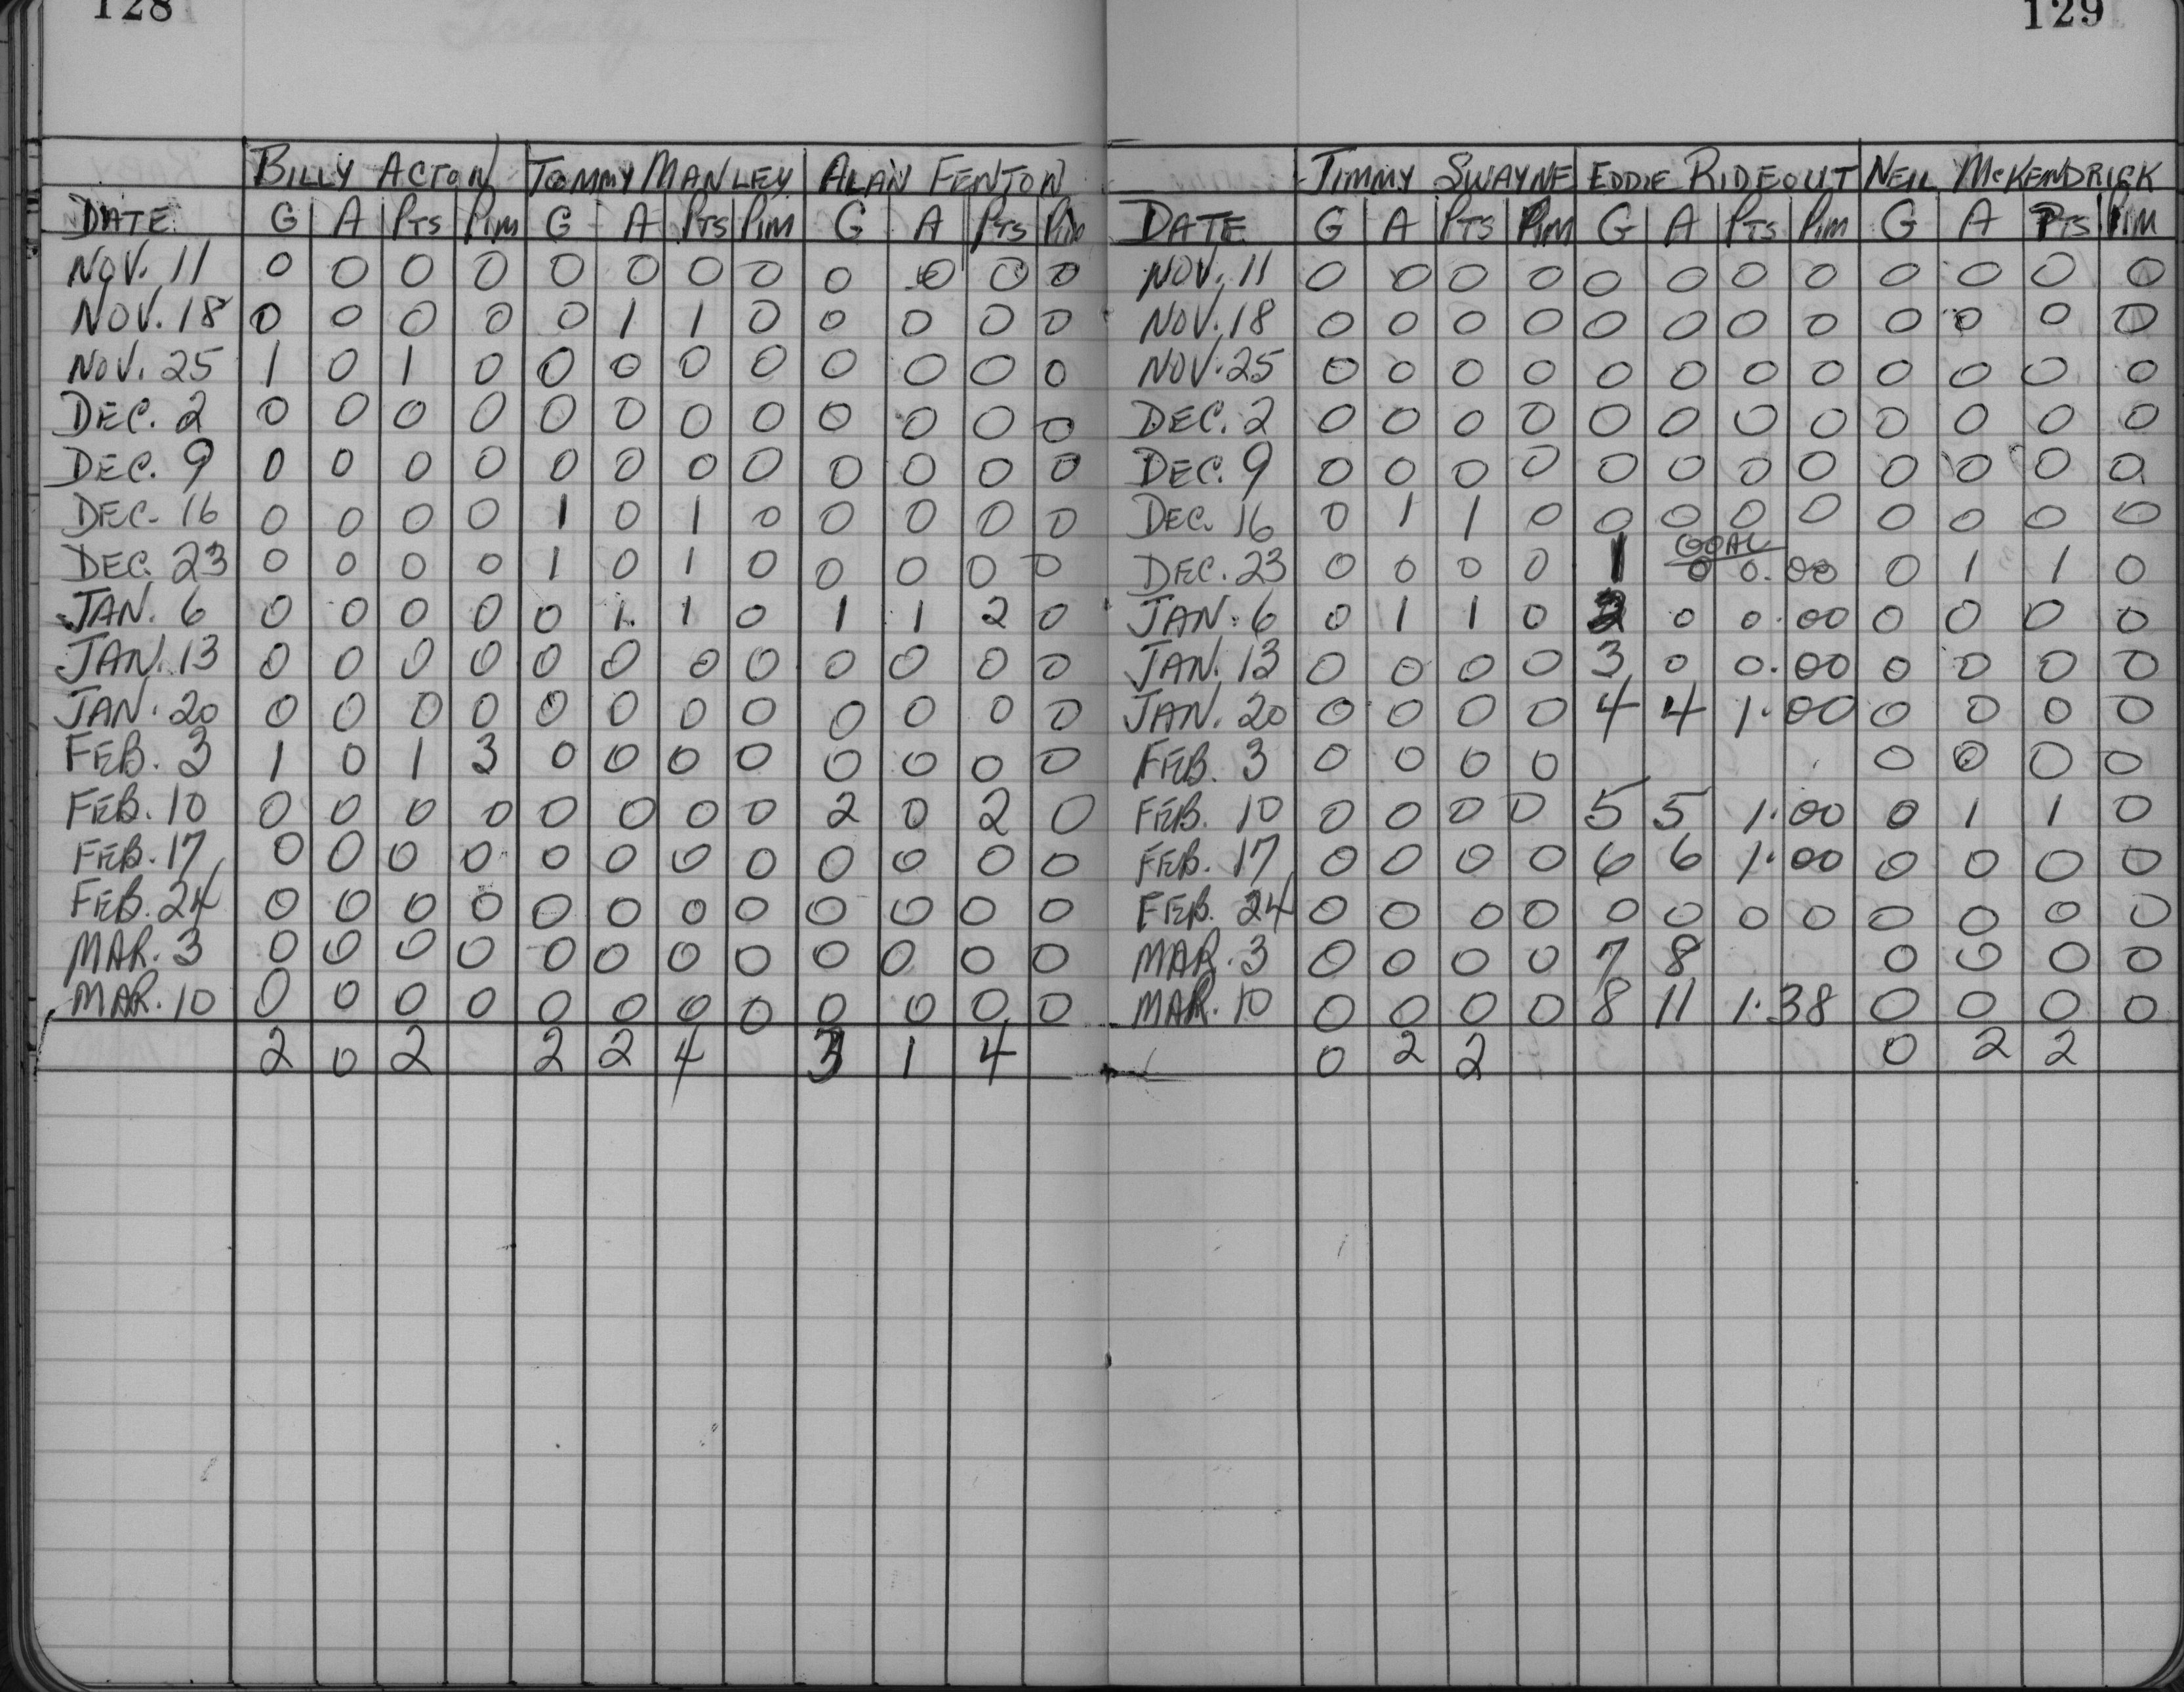 128
BILLY ACTON TOMMY MANLEY ALAN FENTON
DATE G A PTS PIM G A PTS PIM G A PTS PIM
NOV. 11 0 0 0 0 0 0 0 0 0 0 0 0
NOV. 18 0 0 0 0 0 1 1 0 0 0 0 0
NOV. 25 1 0 1 0 0 0 0 0 0 0 0 0
DEC. 2 0 0 0 0 0 0 0 0 0 0 0 0
DEC. 9 0 0 0 0 0 0 0 0 0 0 0 0
DEC. 16 0 0 0 0 1 0 1 0 0 0 0 0
DEC. 23 0 0 0 0 1 0 1 0 0 0 0 0
JAN. 6 0 0 0 0 0 1 1 0 1 1 2 0
JAN. 13 0 0 0 0 0 0 0 0 0 0 0 0
JAN. 20 0 0 0 0 0 0 0 0 0 0 0 0
FEB. 3 1 0 1 3 0 0 0 0 0 0 0 0
FEB. 10 0 0 0 0 0 0 0 0 2 0 2 0
FEB. 17 0 0 0 0 0 0 0 0 0 0 0 0
FEB. 24 0 0 0 0 0 0 0 0 0 0 0 0
MAR. 3 0 0 0 0 0 0 0 0 0 0 0 0
MAR. 10 0 0 0 0 0 0 0 0 0 0 0 0
2 0 2 2 2 4 3 1 4
129
JIMMY SWAYNE EDDIE RIDEOUT NEIL McKENDRICK
DATE G A PTS PIM G A PTS PIM G A PTS PIM
NOV. 11 0 0 0 0 0 0 0 0 0 0 0 0
NOV. 18 0 0 0 0 0 0 0 0 0 0 0 0
NOV. 25 0 0 0 0 0 0 0 0 0 0 0 0
DEC. 2 0 0 0 0 0 0 0 0 0 0 0 0
DEC. 9 0 0 0 0 0 0 0 0 0 0 0 0
DEC. 16 0 1 1 0 0 0 0 0 0 0 0 0
GOAL
DEC. 23 0 0 0 0 1 0 0.00 0 1 1 0
JAN. 6 0 1 1 0 2 0 0.00 0 0 0 0
JAN. 13 0 0 0 0 3 0 0.00 0 0 0 0
JAN. 20 0 0 0 0 4 4 1.00 0 0 0 0
FEB. 3 0 0 0 0 0 0 0 0
FEB. 10 0 0 0 0 5 5 1.00 0 1 1 0
FEB. 17 0 0 0 0 6 6 1.00 0 0 0 0
FEB. 24 0 0 0 0 0 0 0 0 0 0 0 0
MAR. 3 0 0 0 0 7 8 0 0 0 0
MAR. 10 0 0 0 0 8 11 1.38 0 0 0 0
0 2 2 0 2 2